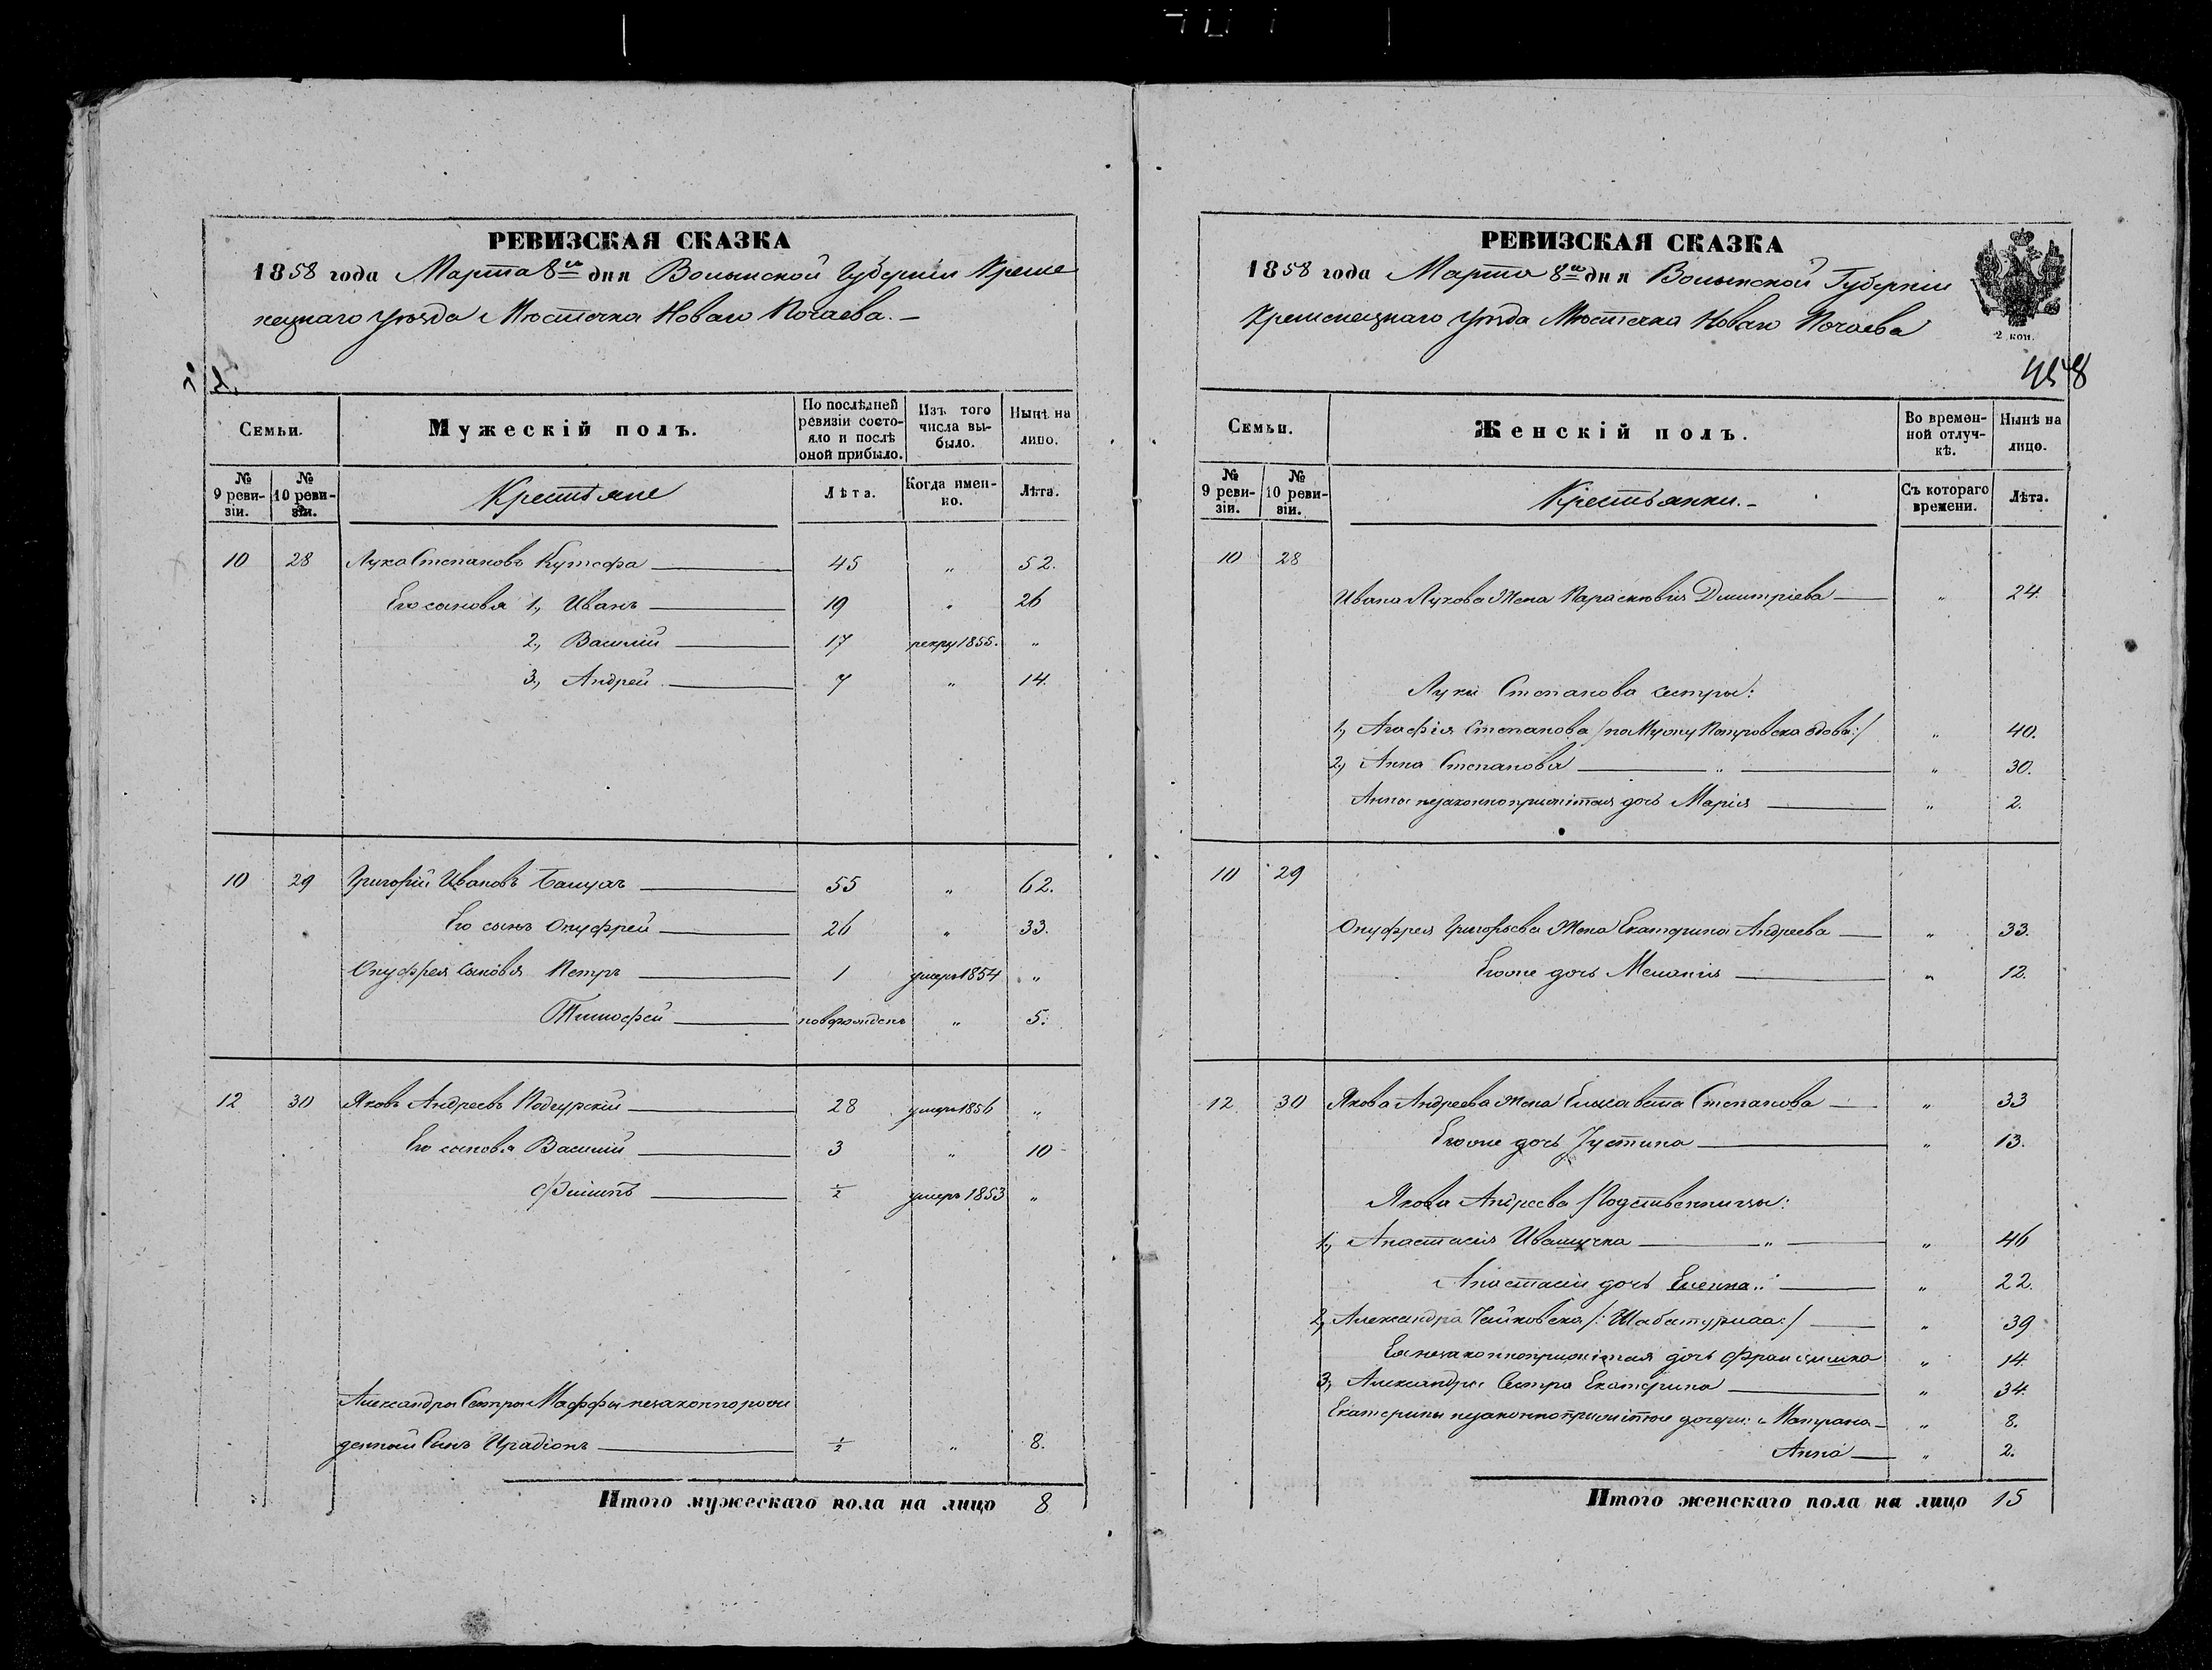 РЕВИЗСКАЯ СКАЗКА
1858 года Марта 8го дня Волынской Губернiи Креме
нецкаго уѣзда Мѣстечка Новаго Почаева. —
Семьи.
Мужескiй полъ.
По послѣдней ревизiи состояло и послѣ оной прибыло.
Изъ того числа выбыло.
Нынѣ на лицо.
№ 9 ревизiи.
№ 10 ревизiи.
Крестьяне
Лѣта.
Когда именно.
Лѣта.
10 28 Лука Степановъ 45 " 52.
Его сыновья 1, Иванъ 19 " 26
2, Василiй 17 рекру 1855. "
3, Андрей 7 " 14.
10 29 Григорiй Ивановъ 55 " 62.
Его сынъ Онуфрей 26 " 33.
Онуфрея сыновья Петръ 1 умеръ 1854 "
Тимофей новорожденъ " 5.
12 30 Яковъ Андреевъ Подгурскiй 28 умеръ 1856 "
Его сыновья Василiй 3 " 10
Филипъ ½ умеръ 1853 "
Александры Сестры Марфы незаконнорож
денный Сынъ ½ " 8.
Итого мужескаго пола на лицо 8
РЕВИЗСКАЯ СКАЗКА
1858 года Марта 8го дня Волынской Губернiи
Кременецкаго уѣзда Мѣстечка Новаго Почаева
2 коп.
458
Семьи.
Женскiй полъ.
Во временной отлучкѣ.
Нынѣ на лицо.
№ 9 ревизiи.
№ 10 ревизiи.
Крестьянки. —
Съ котораго времени.
Лѣта.
10 28
Ивана Лукова Жена Параскювiя Дмитрiева " 24.
Луки Степанова сестры:
1, Агафiя Степанова /по Мужу вдова:/ " 40.
2, Анна Степанова " " 30.
Анны незаконноприжитая дочь Марiя " 2.
10 29
Онуфрея Григорьева Жена Екатерина Андреева " 33.
Егоже дочь Меланiя " 12.
12 30 Якова Андреева Жена Елисавета Степанова " 33
Егоже дочь Iустина " 13.
Якова Андреева Родственницы:
1, Анастасiя " " 46
Анастасiи дочь Еленка " 22.
2, Александра Чайковска /: :/ " 39
Ея незаконноприжитая дочь Францишка " 14
3, Александры Сестра Екатерина " 34.
Екатерины незаконноприжитые дочери: Матрана " 8.
Анна " 2.
Итого женскаго пола на лицо 15